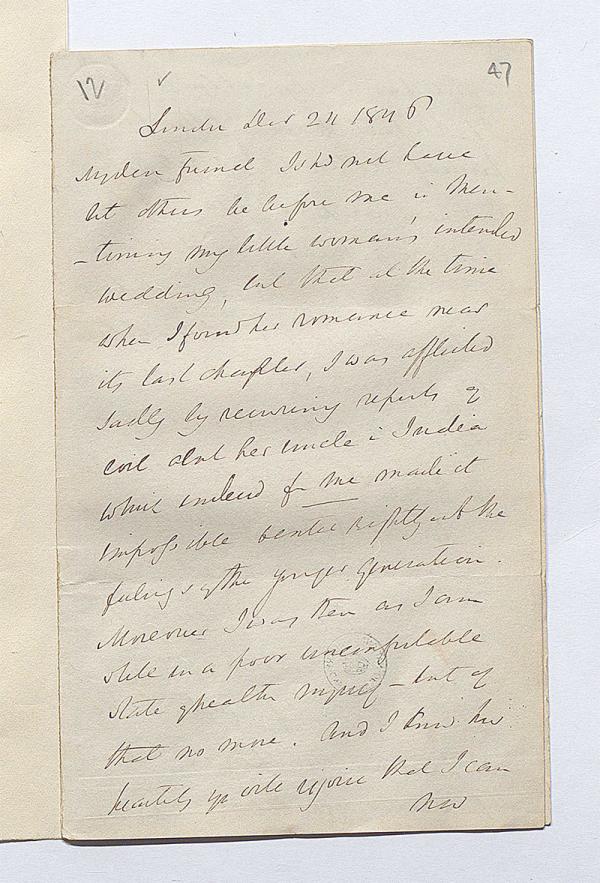 12 ✓ 47
London Dec 24 1846
My dear friend I shd not have
let others be before me in men-
-tioning my little woman's intended
wedding, but that at the time
when I found her romance near
its last chapter, I was afflicted
sadly by recurring reports of
evil about her uncle in India
which indeed for me made it
impossible to enter rightly into the
feelings of the younger generation.
Moreover I was then as I am
still in a poor uncomfortable
state of health myself - but of
that no more. And I know how
heartily you will rejoice that I can
now